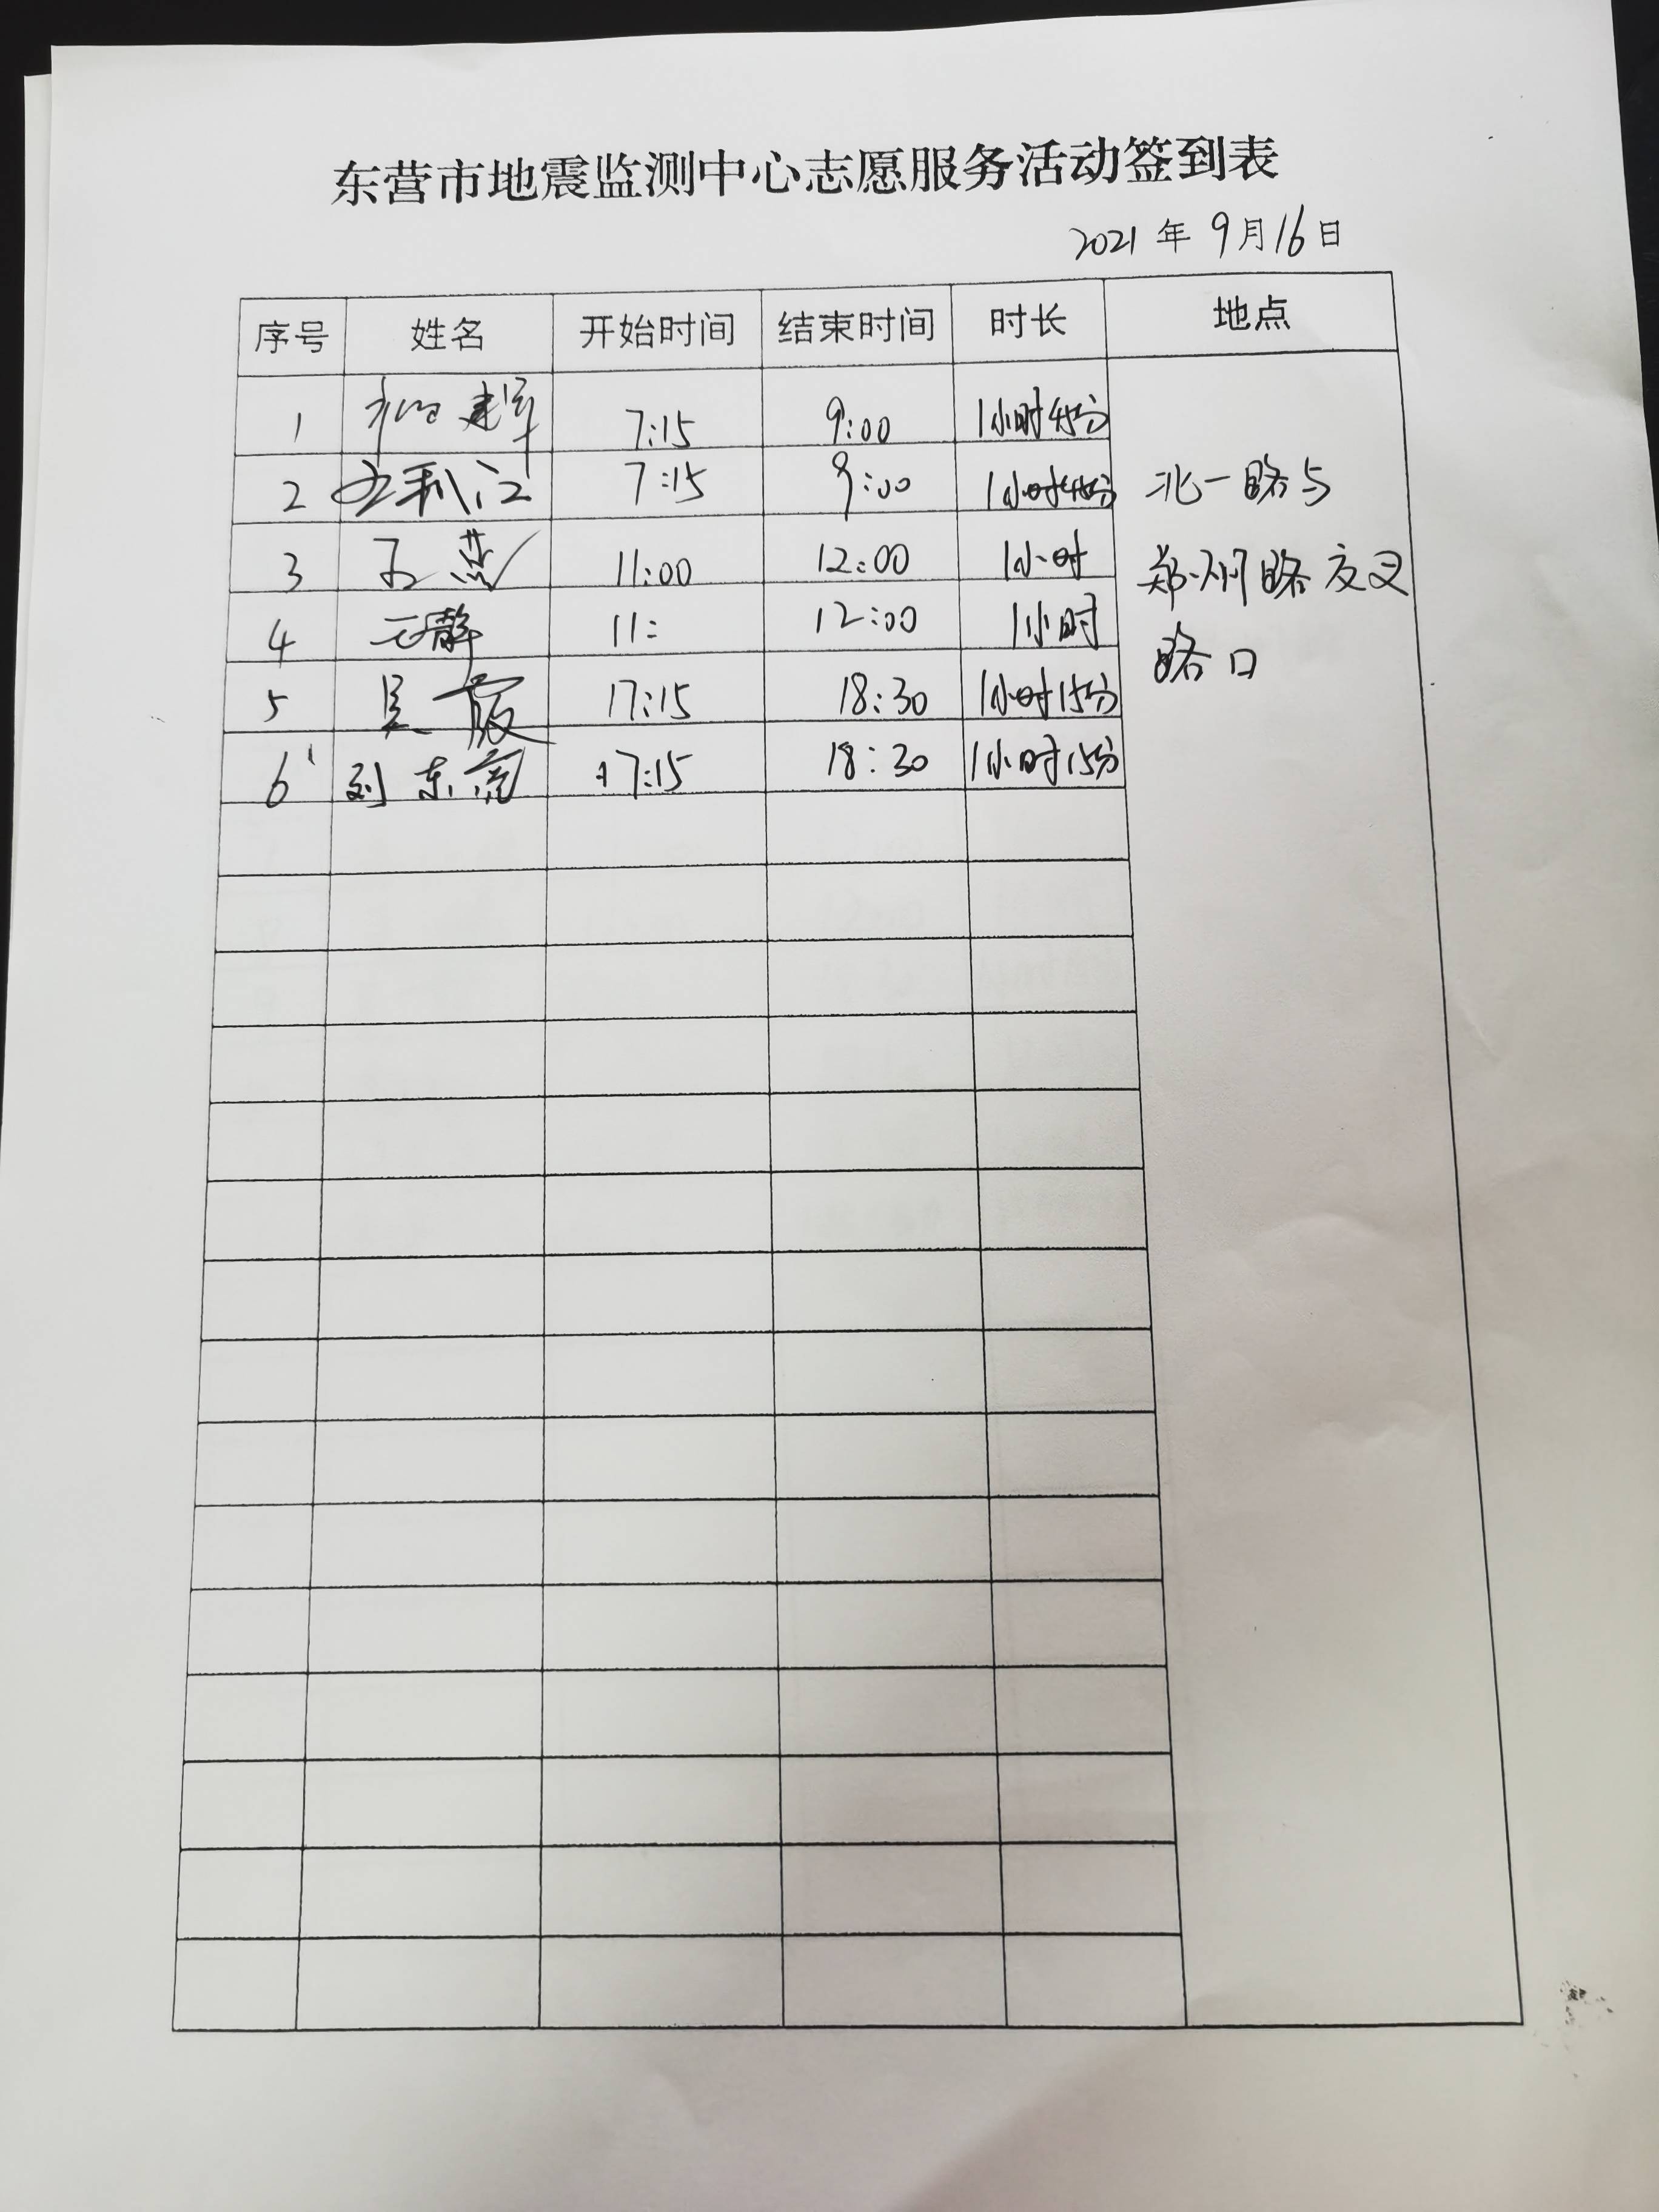 东营市地震监测中心志愿服务活动签到表
2021年9月16日
序号 姓名 开始时间 结束时间 时长 地点
1 7:15 9:00 1小时45分
2 7:15 9:00 1小时45分 北一路与
3 11:00 12:00 1小时 郑州路交叉
4 静 11: 12:00 1小时 路口
5 吴霞 17:15 18:30 1小时15分
6 刘东 17:15 18:30 1小时15分